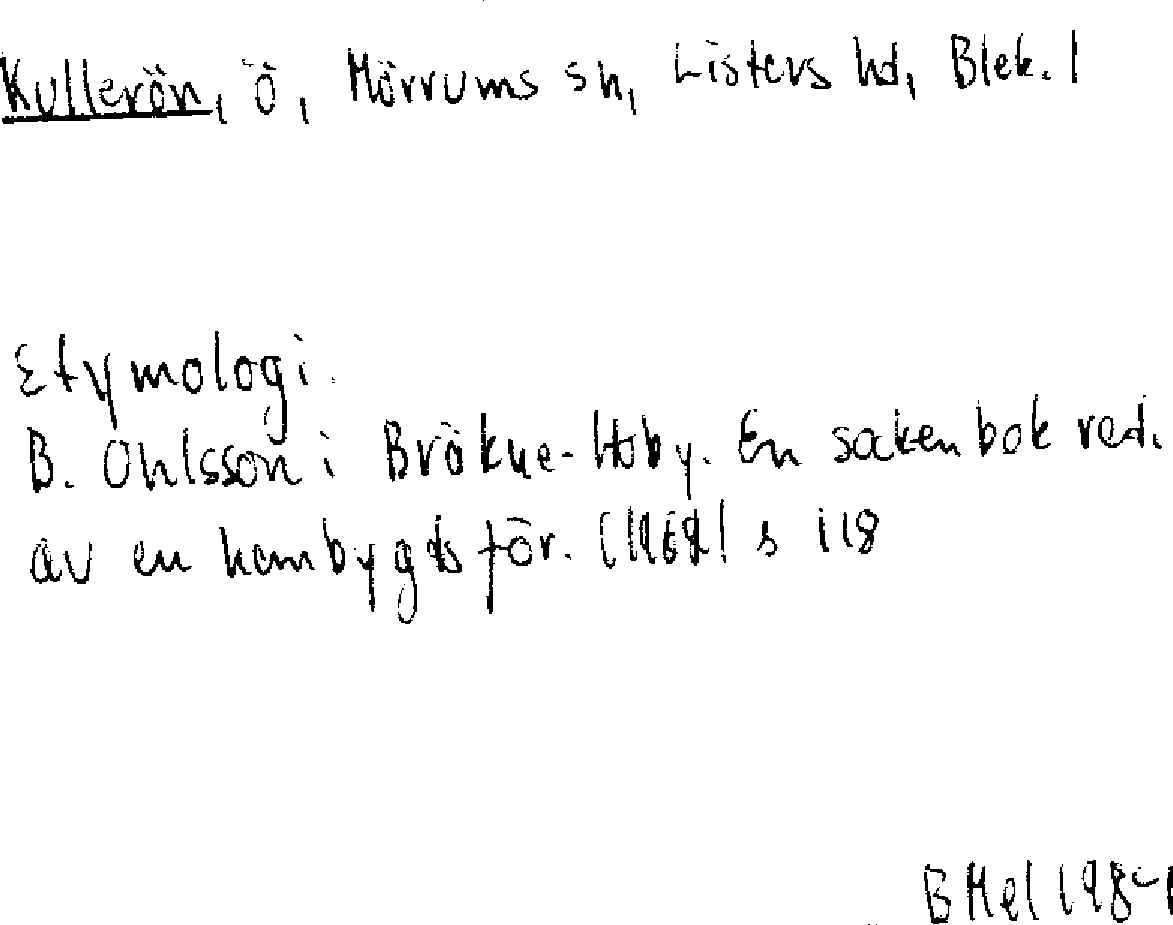 Kullerön, ö, Mörrums sn, Listers hd, Blek. l
Etymologi.
B. Ohlsson i Bräkne-Hoby. En sockenbok red.
av en hembygdsför. s 118
B Hel